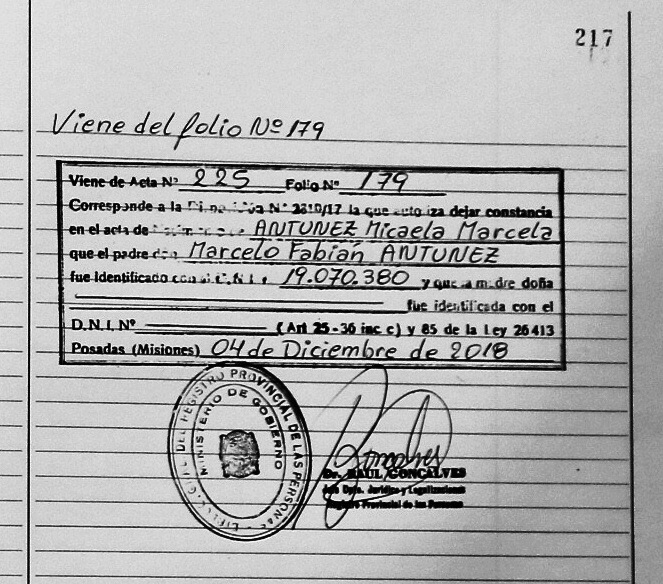 217
Viene del folio Nº 179
Viene de Acta Nº 225 Folio Nº 179
Corresponde a la Nº 2810/17 la que autoriza dejar constancia
en el acta de ANTUNEZ Micaela Marcela
que el padre don Marcelo Fabián ANTUNEZ
fue identificado con el D.N.I. 19.070.380 y que la madre doña
fue identificada con el
D.N.I. Nº (Art 25-36 inc c) y 85 de la Ley 26413
Posadas (Misiones) 04 de Diciembre de 2018
REGISTRO PROVINCIAL DE LAS PERSONAS
MINISTERIO DE GOBIERNO
Dr. RAUL GONCALVES
Dpto. Jurídico y Legalizaciones
Registro Provincial de las Personas